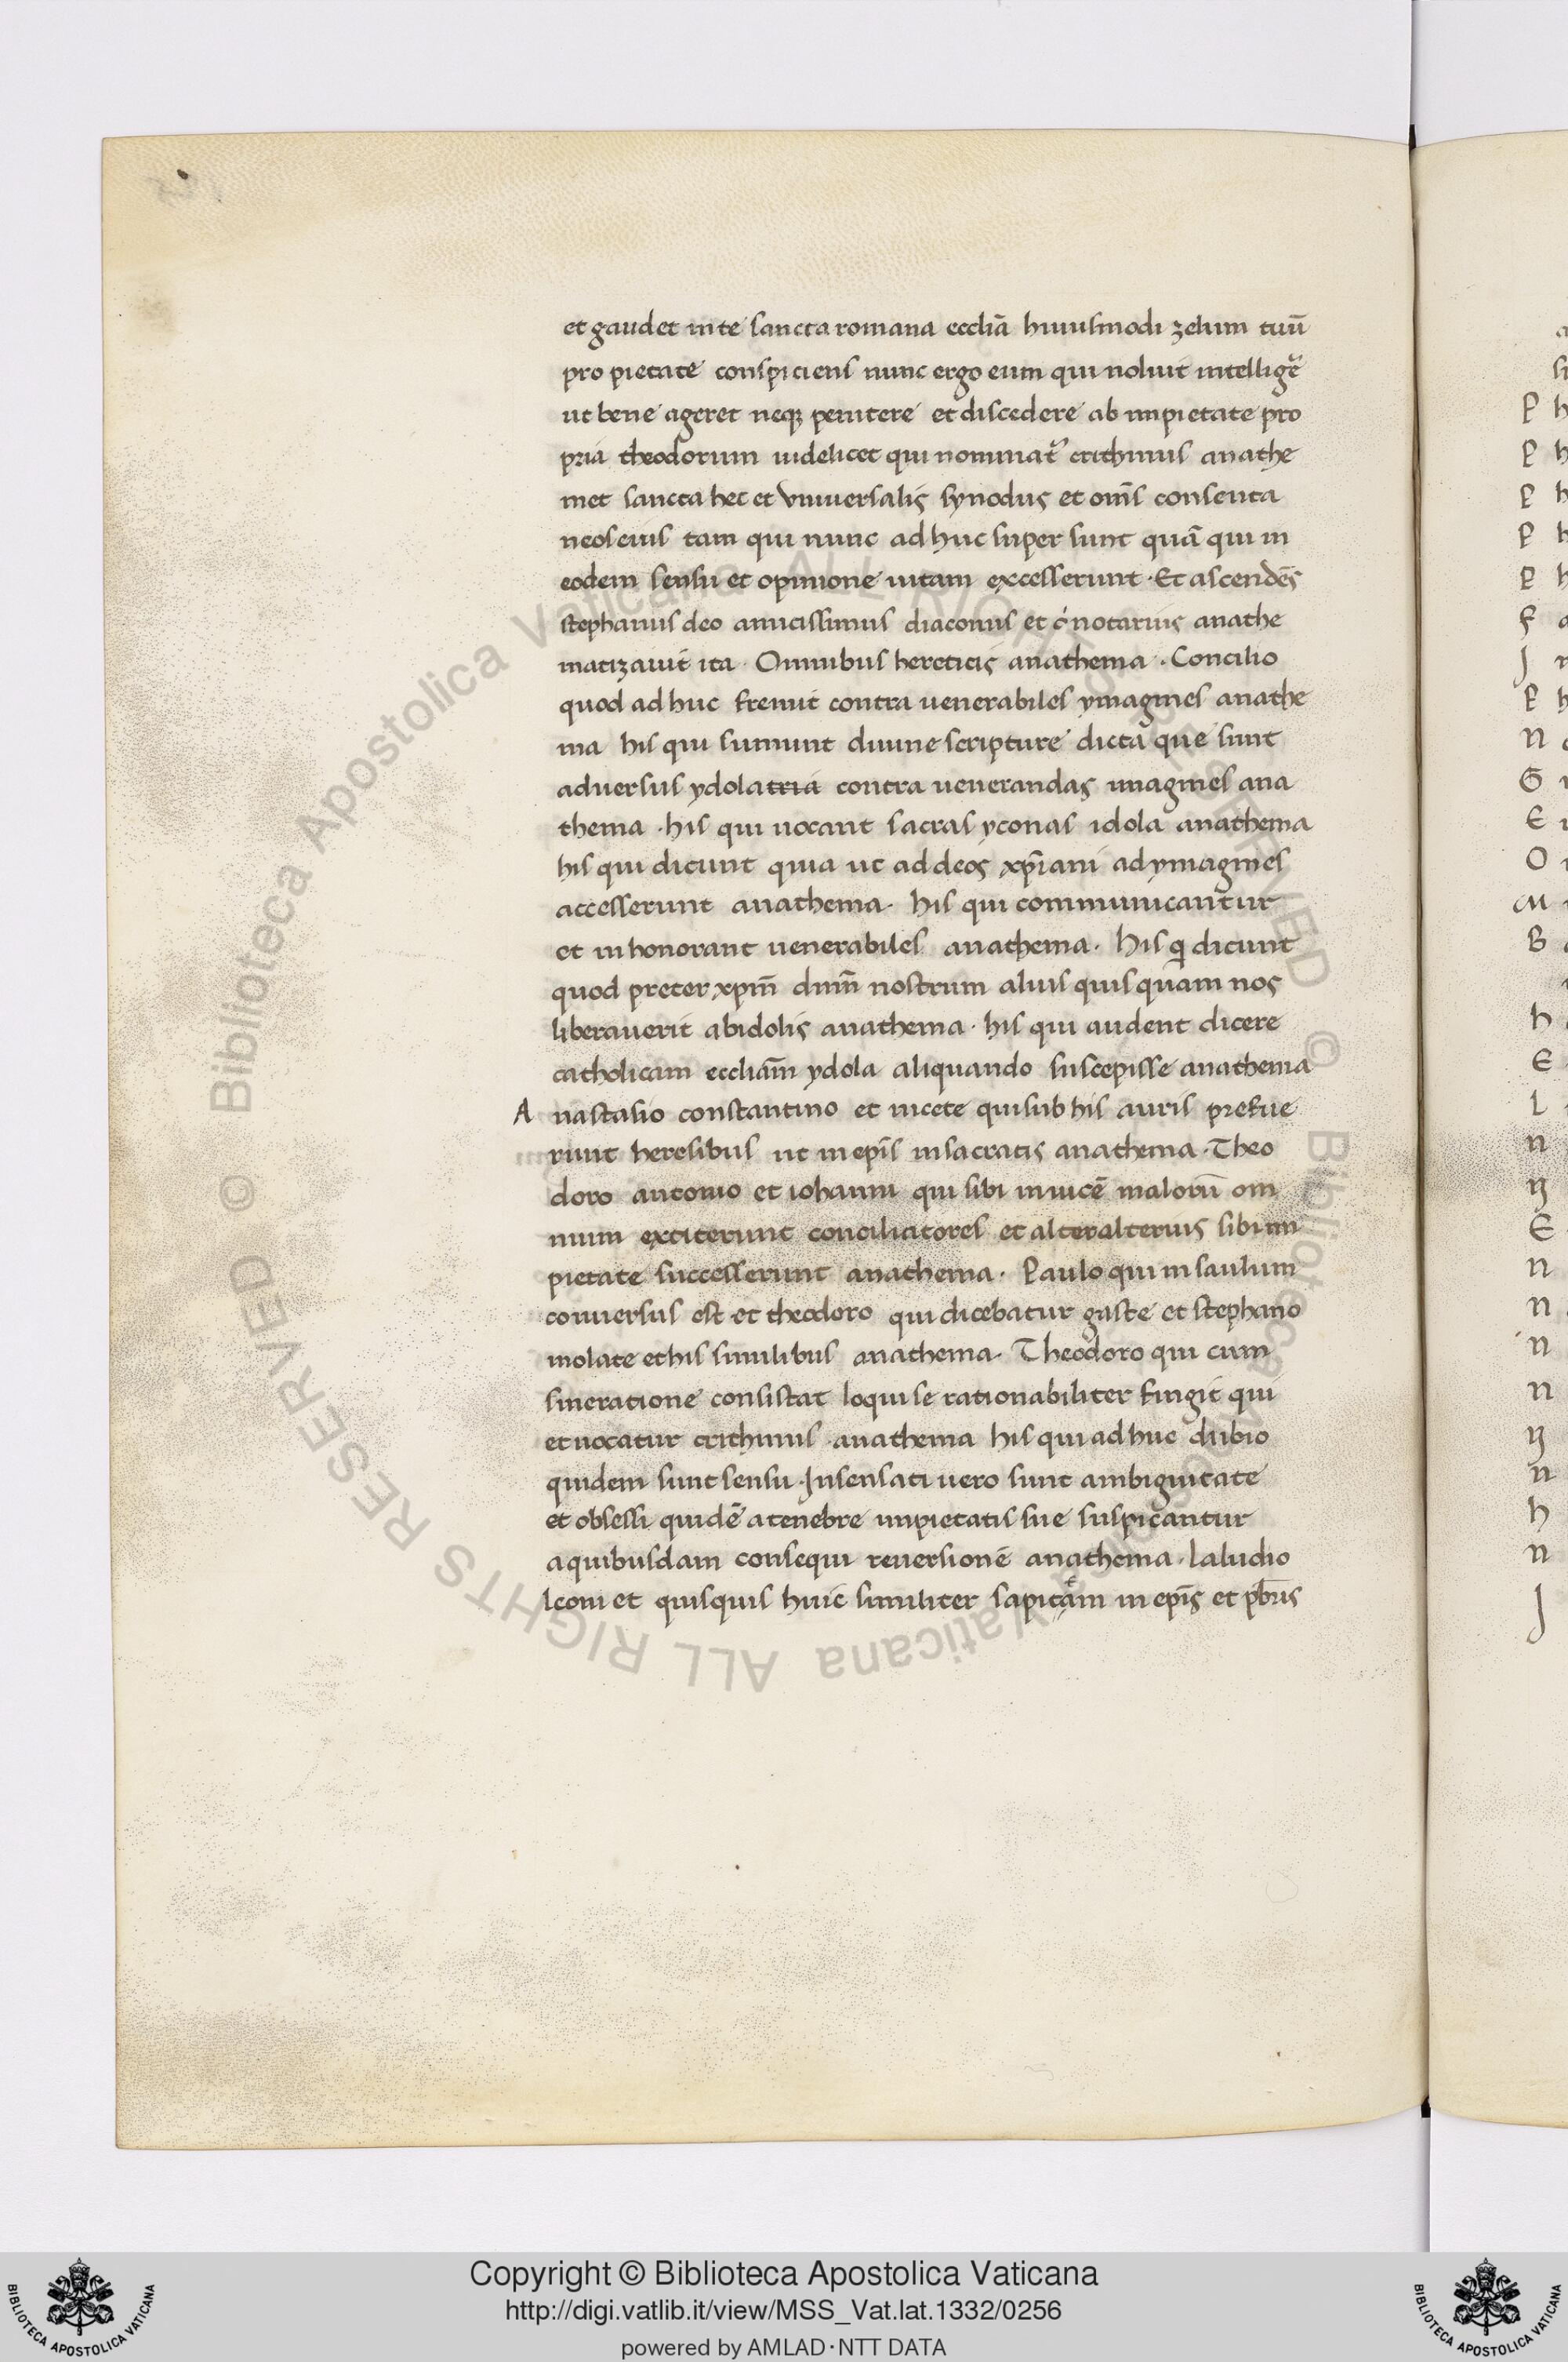 et gaudet in te sancta romana ecclīa huiusmodi zelum tuū
pro pietate conspiciens nunc ergo eum qui noluit intelligēr
ut bene ageret neqȝ penitere et discedere ab impietate pro
pria theodorum uidelicet qui nominat᷑ crithinus anathe
met sancta hec et vniuersalis synodus et om̄s consenta
neos eius tam qui nunc ad huc super sunt quā qui in
eodem sensu et opinione uitam excesserunt · Et ascendēs
stephanus deo amicissimus diaconus et notarius anathe
matizauit ita · Omnibus hereticis anathema · Concilio
quod ad huc fremit contra uenerabiles ymagines anathe
ma his qui sumunt diuine scripture dicta que sunt
aduersus ydolatria contra uenerandas imagines ana
thema · his qui uocant sacras yconas idola anathema
his qui dicunt quia ut ad deos xp̄iani ad ymagines
accesserunt anathema · his qui communicantur
et in honorant uenerabiles anathema · His q dicunt
quod preter xpm̄ dnm̄ nostrum alius quisquam nos
liberauerit ab idolis anathema · his qui audent dicere
catholicam eccliam̄ ydola aliquando suscepisse anathema
A nastasio constantino et nicete qui sub his auris prefue
runt heresibus ut in epīs insacratis anathema · Theo
doro antonio et iohanni qui sibi inuicē malorū om
nium extiterunt conciliatores et alter alterius sibi im
pietate successerunt anathema · Paulo qui in saulum
conuersus est et theodoro qui dicebatur gaste et stephano
molate et his similibus anathema · Theodoro qui cum
sine ratione consistat loqui se rationabiliter fingit qui
et uocatur crithinus · anathema his qui ad huc dubio
quidem sunt sensu · Insensati uero sunt ambiguitate
et obsessi quidē a tenebre impietatis sue suspicantur
a quibusdam consequi reuersionē anathema · laludio
leoni et quisquis huic similiter sapit tam in epīs et pb̄ris
Copyright © Biblioteca Apostolica Vaticana
http://digi.vatlib.it/view/MSS_Vat.lat.1332/0256
powered by AMLAD · NTT DATA